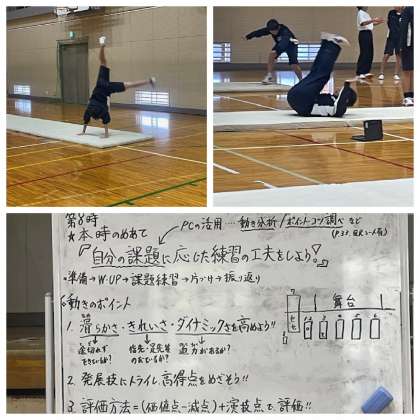 第8時
★本時のめあて
PCの活用…動き分析/ポイント・コツ調べ など
『自分の課題に応じた練習の工夫をしよう!』
・準備→W-UP→課題練習→片づけ→振り返り
動きのポイント
舞台
1. 滑らかさ・きれいさ・ダイナミックさを高めよう!!
途切れず できているか?
指先・足先まで のびているか?
迫力があるか?
2. 発展技にトライし高得点をめざそう!!
3. 評価方法=(価値点−減点)+演技点で評価!!